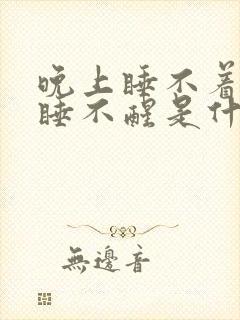 晚上睡不着
睡不醒是什
無邊音